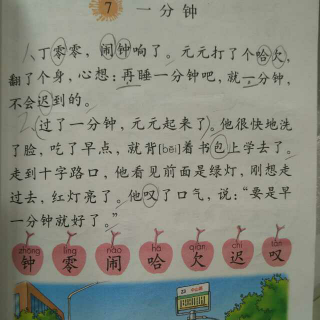 7 一分钟
1、丁零零，闹钟响了。元元打了个哈欠，
翻了个身，心想：再睡一分钟吧，就一分钟，
不会迟到的。
2、过了一分钟，元元起来了。他很快地洗
了脸，吃了早点，就背(bēi)着书包上学去了。
走到十字路口，他看见前面是绿灯，刚想走
过去，红灯亮了。他叹了口气，说：“要是早
一分钟就好了。”
zhōng líng nào hā qiàn chí tàn
钟 零 闹 哈 欠 迟 叹